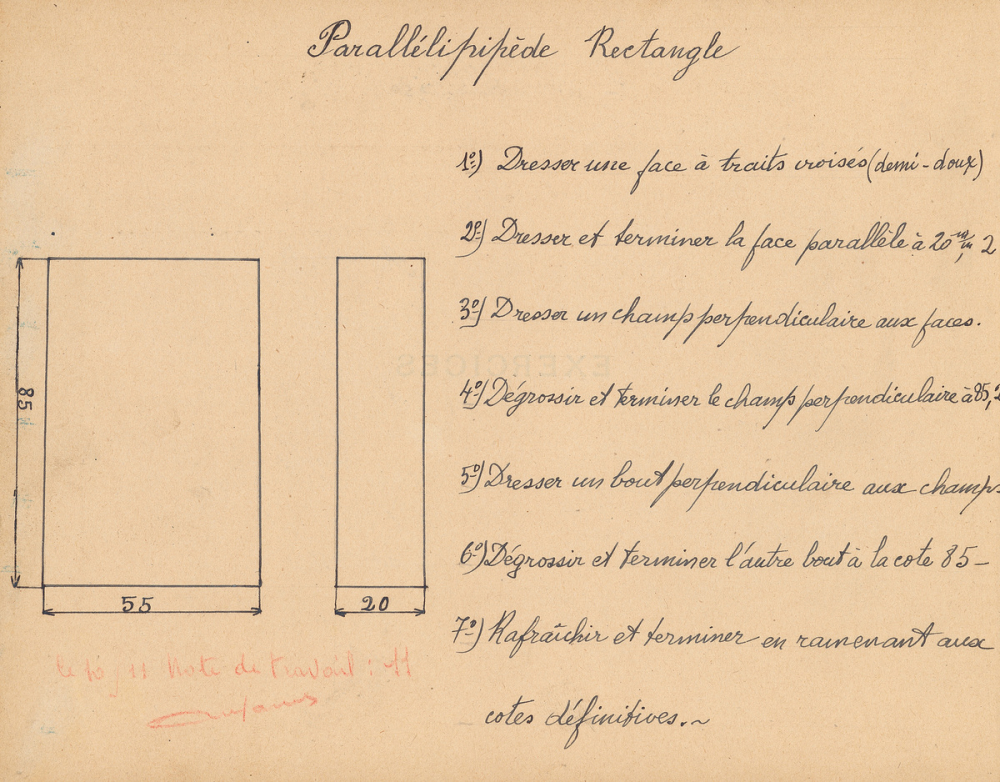 Parallélipipède Rectangle
1º) Dresser une face à traits croisés (demi-doux)
2º) Dresser et terminer la face parallèle à 20 m/m, 2
3º) Dresser un champ perpendiculaire aux faces.
4º) Dégrossir et terminer le champ perpendiculaire à 85,2
5º) Dresser un bout perpendiculaire aux champs
6º) Dégrossir et terminer l'autre bout à la cote 85-
7º) Rafraîchir et terminer en ramenant aux
cotes définitives.~
85
55
20
Note de travail : 11